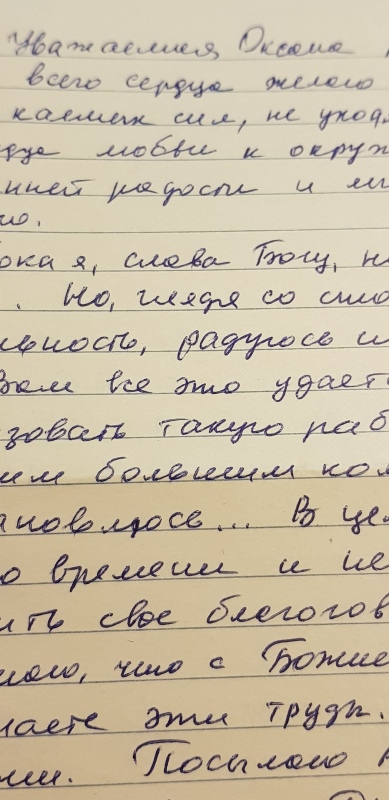 Уважаемая, Оксана
всего сердца желаю
каемых сил, не уход
дце любви к окруж
нней радости и ми
ю.
ока я, слава Богу, н
. Но, глядя со сто
льность, радуюсь и
Вам все это удаетс
зовать такую раб
им большим кол
ановлюсь... В це
о времени и не
ить свое благогов
ного, что с Божие
маете эти труды.
ии. Посылаю